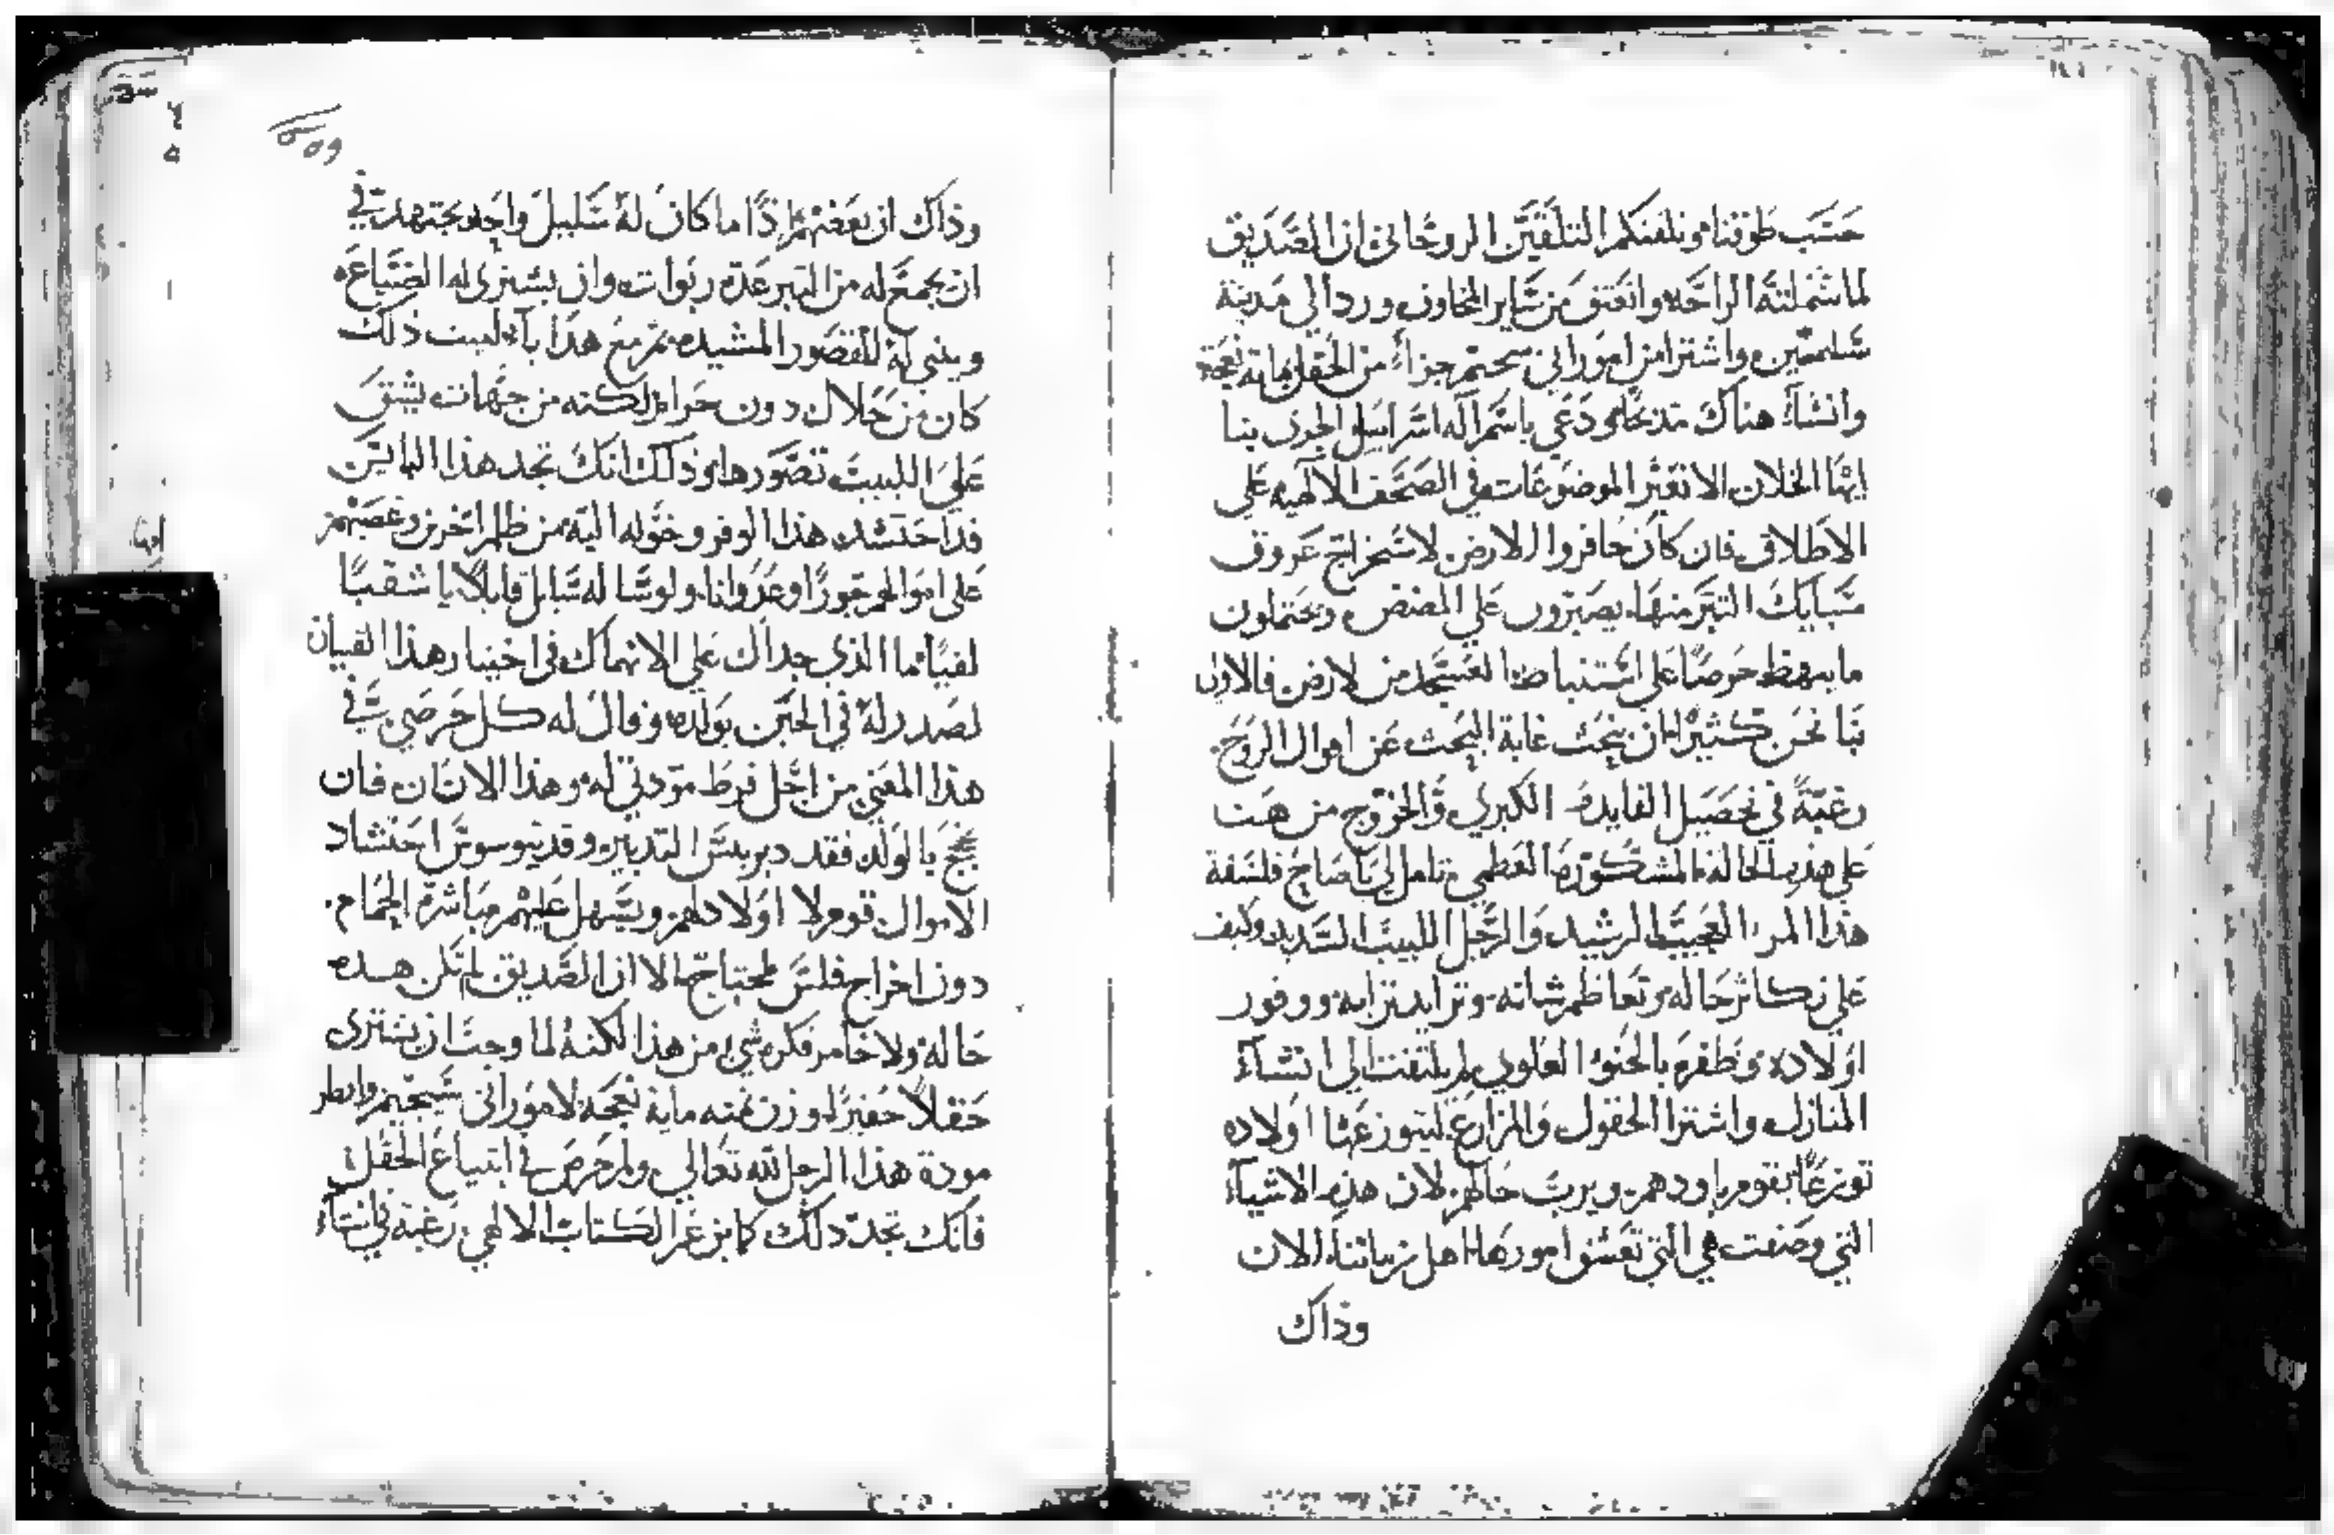 حسب طوقنا ونلقنكم التلقين الروحاني ان الصديق
لما شملته الراحه وانعتق من ساير المخاوف ورد الي مدينة
سليمين واشترا من امور ابي سحيم جزاء من الحقل بماية نعجة
وانشاء هناك مذبحا ودعي باسم اله اسراييل الحري بنا
ايها الخلان الا نعبر الموضوعات في الصحف الالهيه علي
الاطلاق فان كان حافروا الارض لاستخراج عروق
سبايك التبر منها يصبرون علي المضض ويحتملون
ما يبهظ حرصا علي استنباط العسجد من لارض فالاولي
بنا نحن كثيرا ان نبحث غاية البحث عن اموال الروح
رغبة في تحصيل الفايده الكبري والخروج من هنت
علي هذه الحالة المشكوره العظمي تامل لي يا صاح فلسفة
هذا المرء العجيب الرشيد والرجل اللبيب السديد وكيف
علي تكاثر حاله وتعاظم شانه وتزايد ترابه ووفور
اولاده وظفره بالحنو العلوي لم يلتفت الي انشاء
المنازل واشترا الحقول والمزارع ليتوزعها اولاده
توزعا يقوم باودهم ويربت حالهم لان هذه الاشياء
التي وصفت هي التي تعشق امورها اهل زماننا الان
وذاك
وذاك ان بعضهم اذا ما كان له سليل واحد يجتهد في
ان يجمع له من التبر عدة ربوات وان يشتري له الضياع
ويبني له القصور المشيده ثم مع هذا يا ليت ذلك
كان من حلال دون حرام لكنه من جهات يشق
علي اللبيب تصورها وذلك انك تجد هذا البايس
قد احتشد هذا الوفر وخوله اليه من ظلم اخرين وغصبهم
علي اموالهم جورا وعدوانا ولو ساله سايل قايلا يا شقيا
لفيا ما الذي حداك علي الانهماك في اختيار هذا القيان
لصدر له في الحين بولده وقال له كل حرصي في
هذا المعني من اجل فرط مودتي له وهذا الان ان فان
بخ بخ يا لولد فقد دبر بيس التدبير وقد يوسوس احتشاد
الاموال قوم لا اولاد لهم ويسهل عليهم مباشرة الحمام
دون اخراج فلس لمحتاج الا ان الصديق لم تكن هذه
حاله ولا خامر فكره شي من هذا لكنه لما وجب ان يشتري
حقلا حقيرا وزن ثمنه ماية نعجه لامور ابي سحيم وانظر
مودة هذا الرجل لله تعالي ولم حرص في ابتياع الحقل
فانك تجد ذلك كاين عن الكتاب الالهي رغبه في انشاء